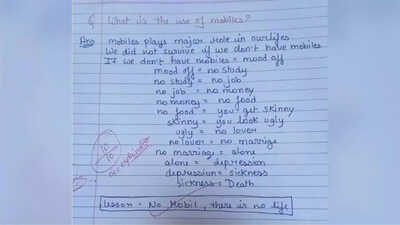 Q What is the use of mobiles?
Ans mobiles plays major role in our lifes.
We did not survive if we don't have mobiles
If we don't have mobiles = mood off
mood off = no study
no study = no job
no job = no money
no money = no food
no food = you get skinny
skinny = you look ugly
ugly = no lover
no lover = no marrige
no marriage = alone
alone = depression
depression = sickness
sickness = Death
10/10
Lesson - No Mobil, there is no life